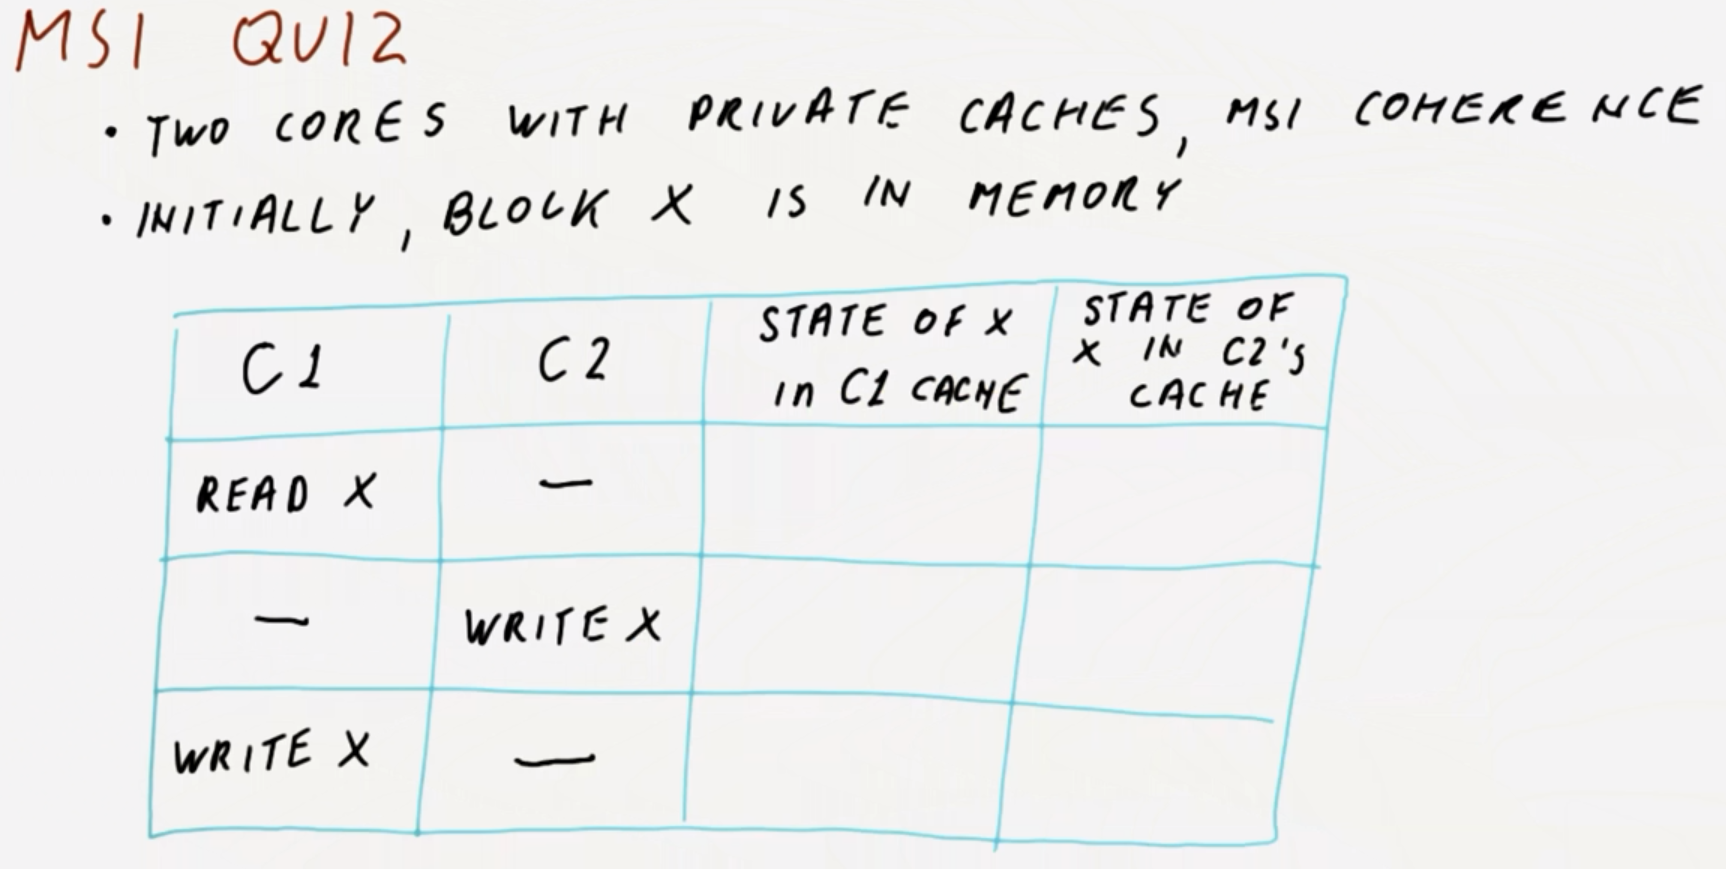 MSI QUIZ
• TWO CORES WITH PRIVATE CACHES, MSI COHERENCE
• INITIALLY, BLOCK X IS IN MEMORY
C1
C2
STATE OF X
in C1 CACHE
STATE OF
X IN C2's
CACHE
READ X
—
—
WRITE X
WRITE X
—